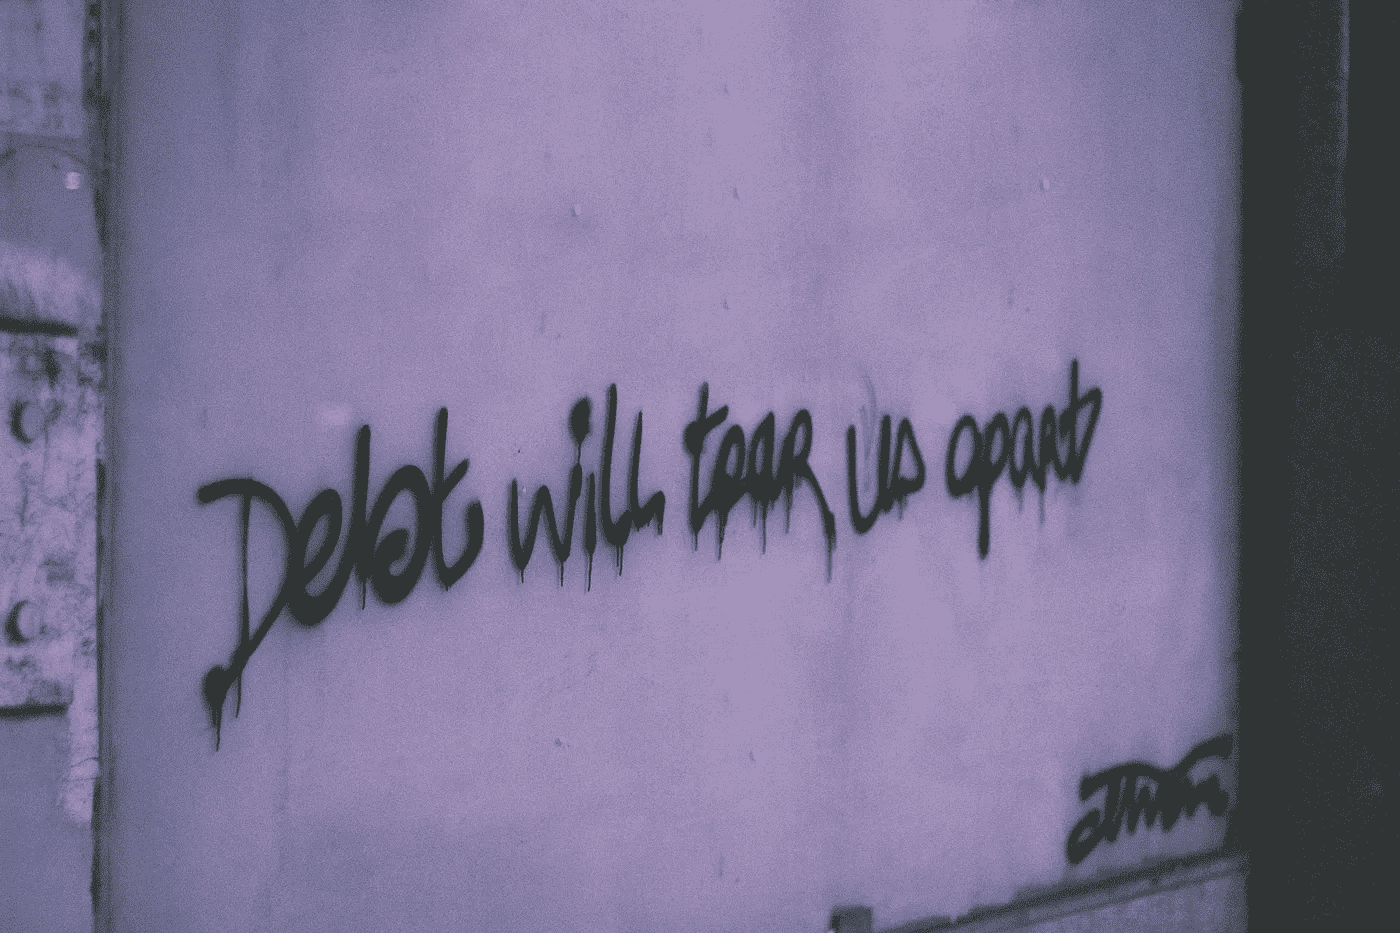 Debt will tear us apart